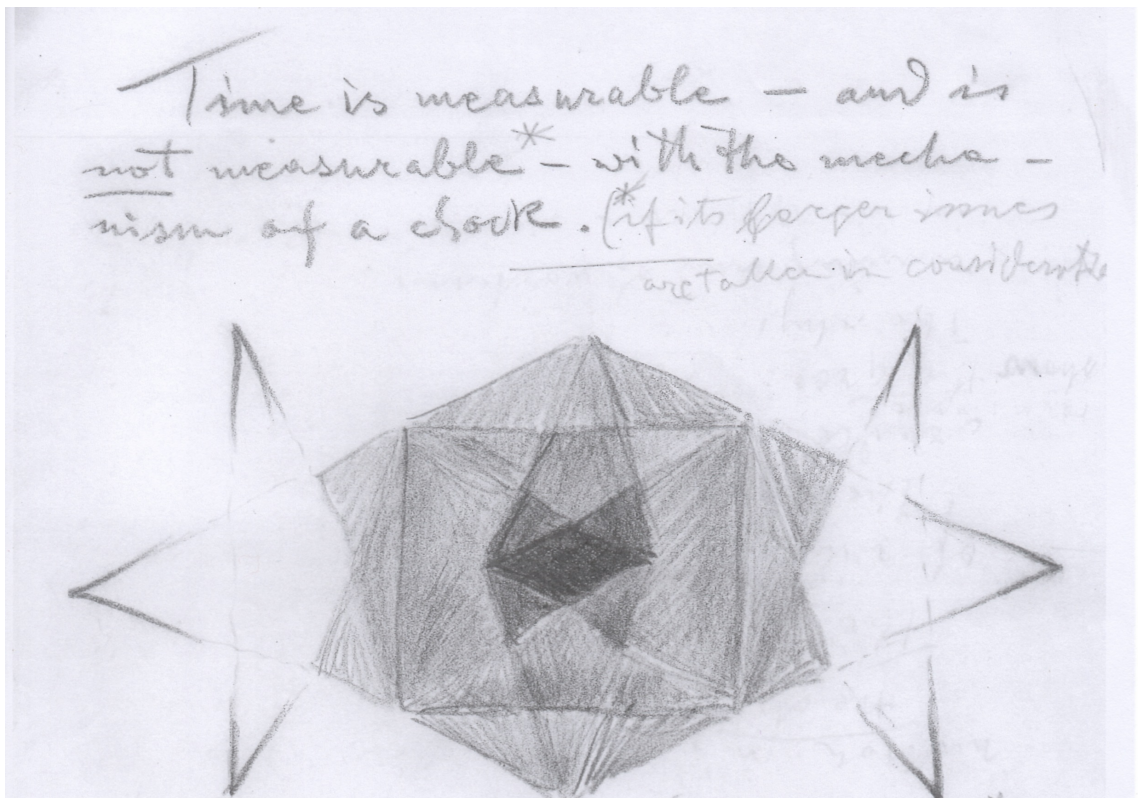 Time is measurable – and is
not measurable* – with the mecha –
nism of a clock. (*if its larger issues
are taken in consideratio